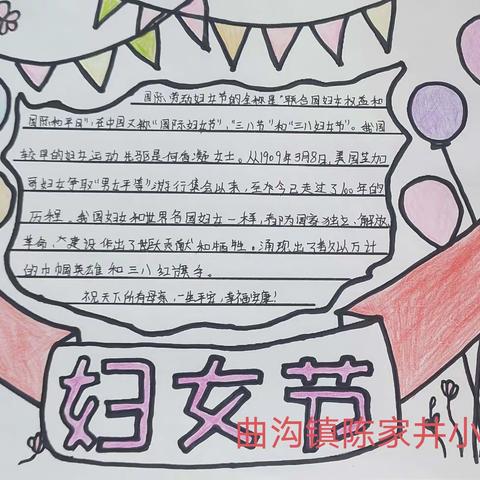 国际劳动妇女节的全称是"联合国妇女权益和
国际和平日",在中国又称"国际妇女节","三八节"和"三八妇女节"。我国
较早的妇女运动先驱是何香凝女士。从1909年3月8日,美国芝加
哥妇女争取"男女平等"游行集会以来,至今已走过了100年的
历程。我国妇女和世界各国妇女一样,为国家独立、解放
革命、建设作出了贡献和牺牲。涌现出了数以万计
的巾帼英雄和三八红旗手。
祝天下所有母亲,一生平安,幸福安康!
妇女节
曲沟镇陈家井小